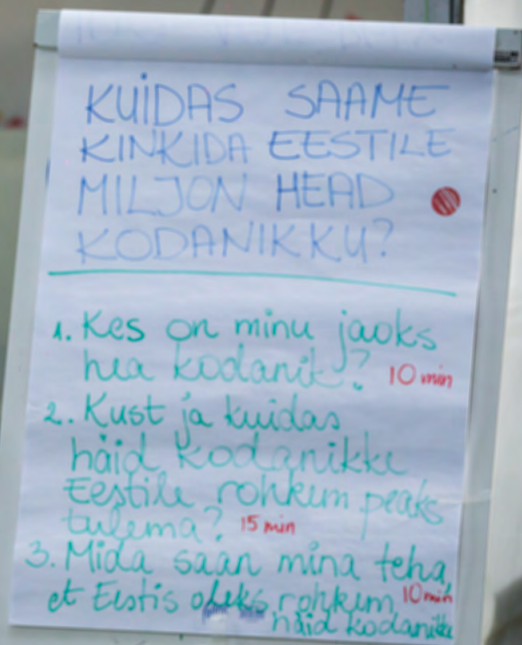 KUIDAS SAAME
KINKIDA EESTILE
MILJON HEAD
KODANIKKU?
1. Kes on minu jaoks
hea kodanik? 10 min
2. Kust ja kuidas
häid kodanikke
Eestile rohkem peaks
tulema? 15 min
3. Mida saan mina teha,
et Eestis oleks rohkem 10 min
häid kodanikke